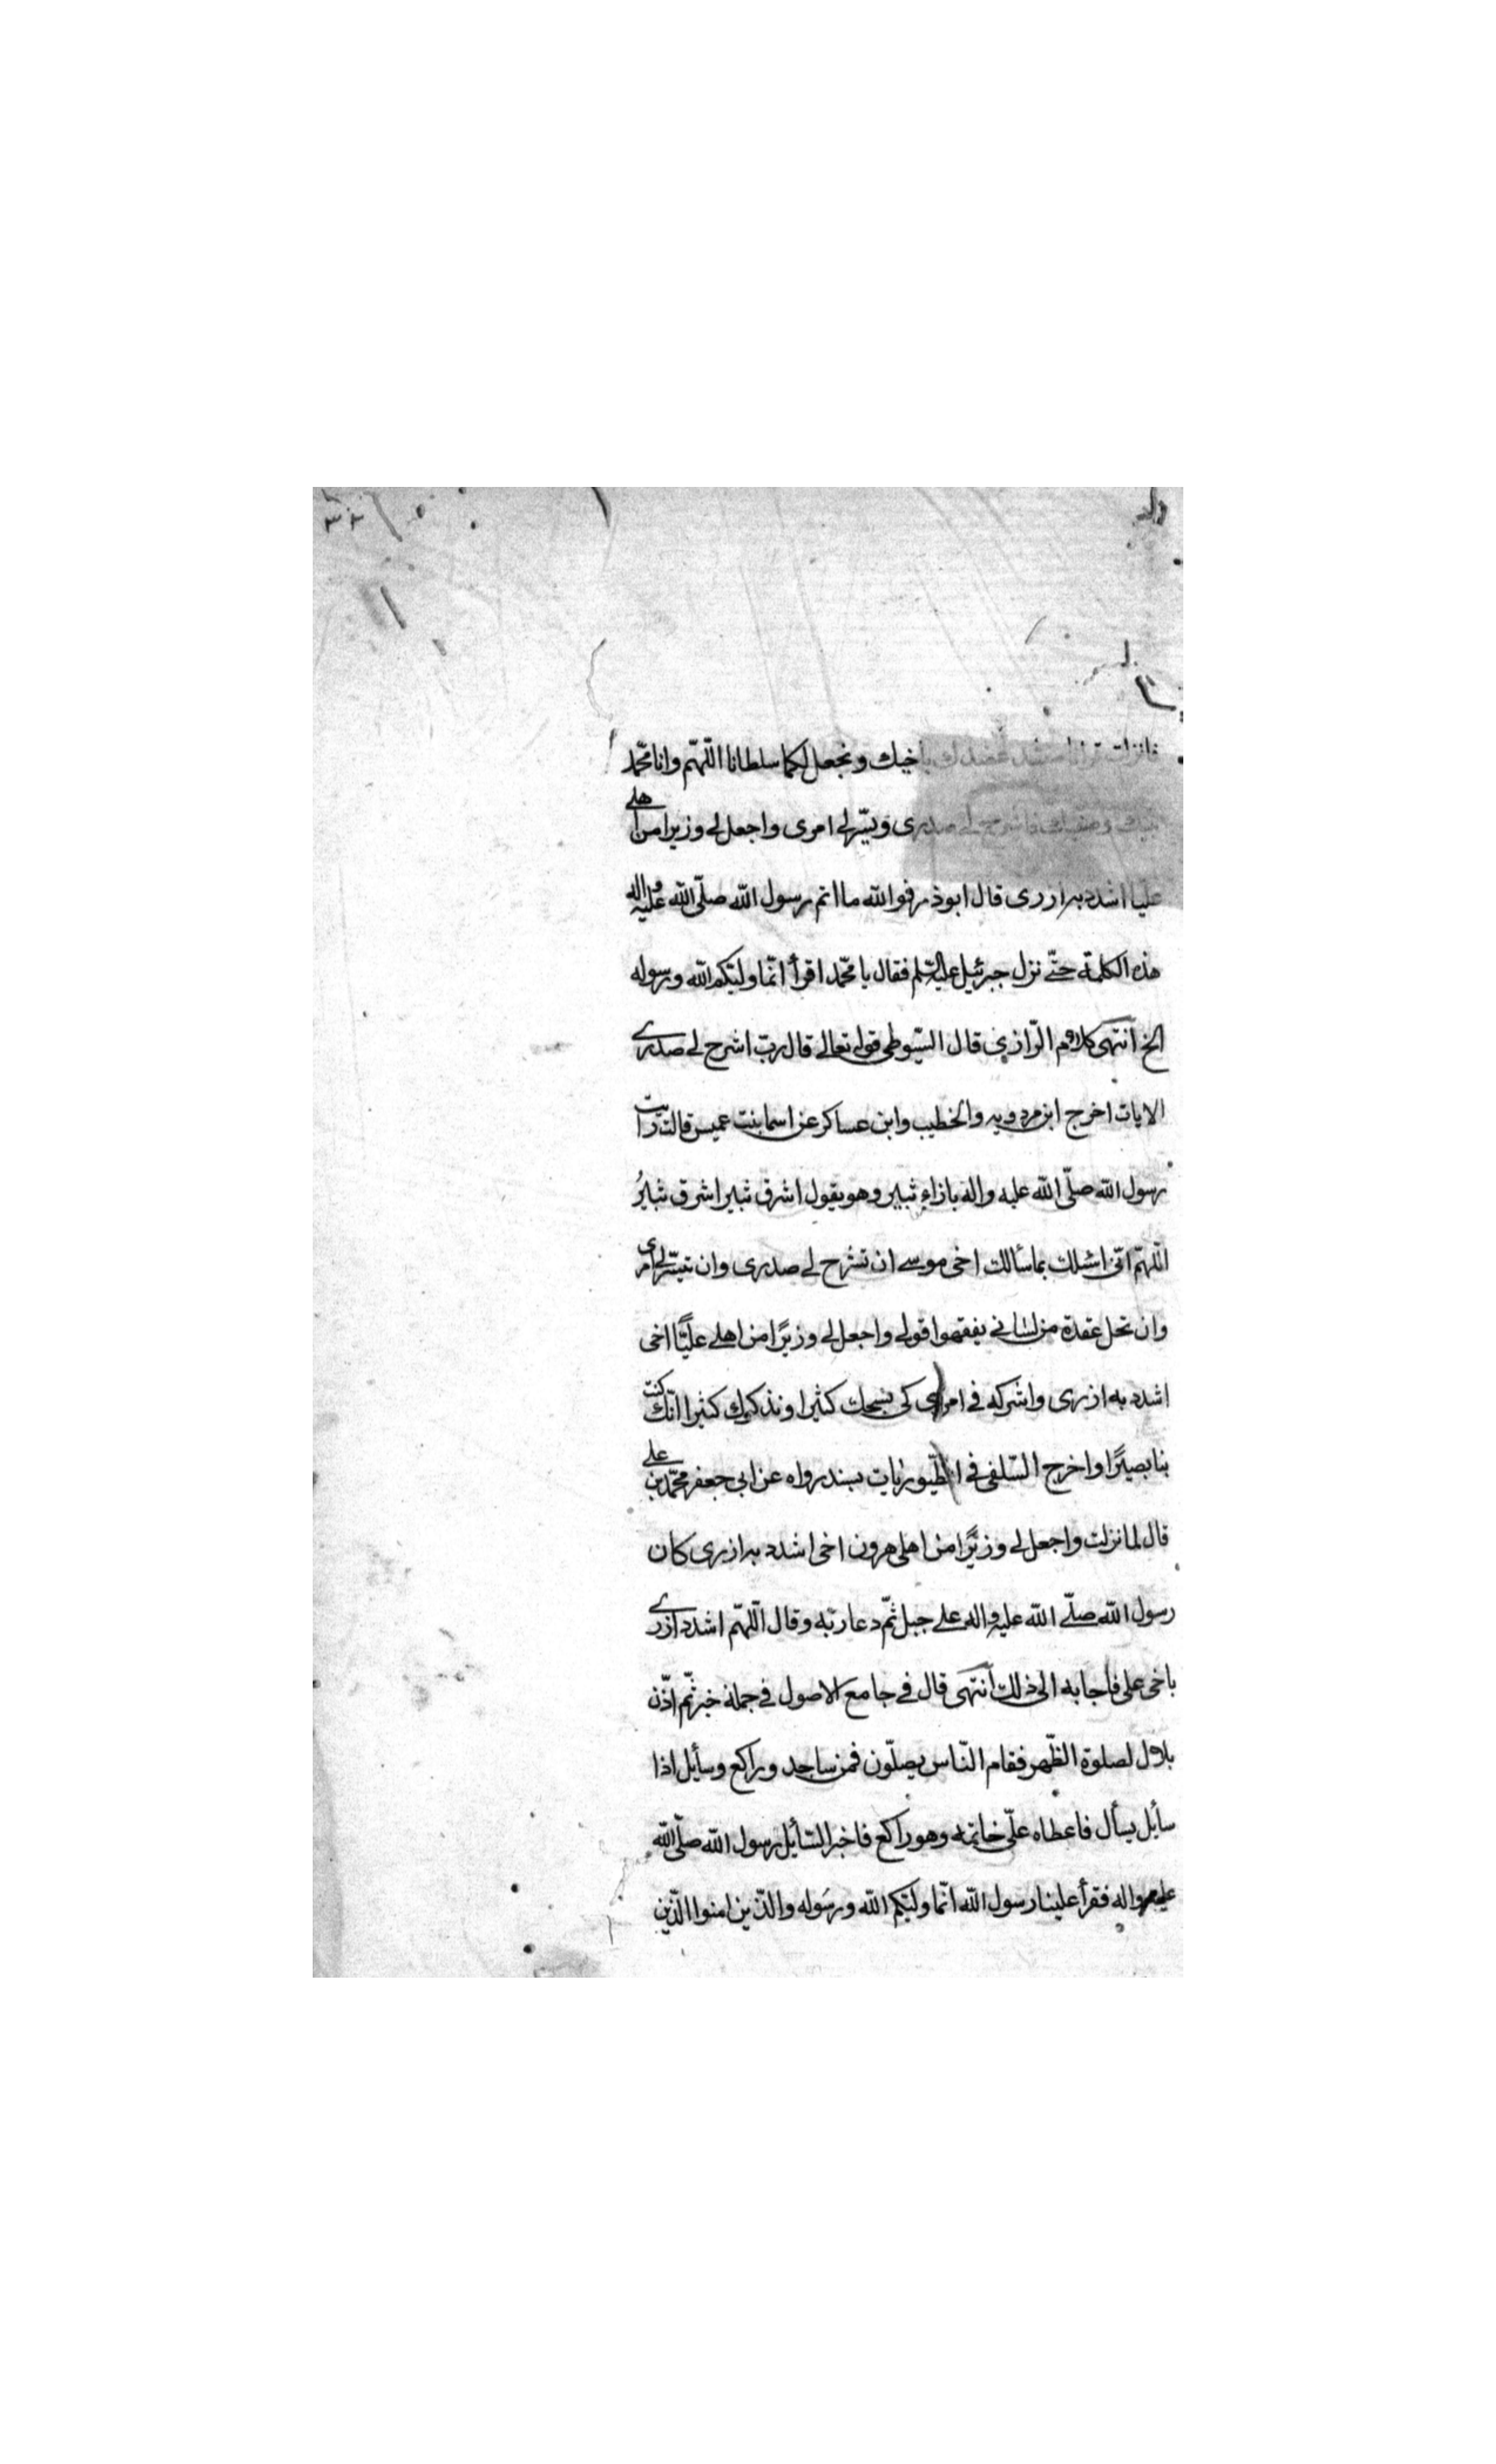 فانزلت قرانا سنشد عضدك باخيك ونجعل لكما سلطانا اللّهمّ وانا محمّد
نبيك وصفيك فاشرح لے صدرى ويسّرلے امرى واجعل لے وزيرا من اهلے
عليّا اشدد به ازرى قال ابوذر فوالله ما اتم رسول الله صلّى الله عليه واله
هذه الكلمة حتّے نزل جبرئيل عليه السّلم فقال يا محمّد اقرأ انّما وليّكم الله ورسوله
الخ انتهى كلام الرّازي قال السّيوطى قوله تعالے قال ربّ اشرح لے صدرے
الايات اخرج ابن مردويه والخطيب وابن عساكر عن اسما بنت عميس قالت رايت
رسول الله صلّى الله عليه واله بازاء ثبير وهو يقول اشرق ثبير اشرق ثبيرُ
اللّهمّ انّى اسئلك بما سألك اخى موسے ان تشرح لے صدرى وان تيسّر لے امرى
وان تحل عقدة من لسانے يفقهوا قولے واجعل لے وزيرًا من اهلے عليًّا اخى
اشدد به ازرى واشركه فے امرى كى نسبحك كثيرا ونذكرك كثيرا انّك كنت
بنا بصيرًا واخرج السّلفى فے الطّيوريات بسند رواه عن ابى جعفر محمّد بن علے
قال لما نزلت واجعل لے وزيرًا من اهلى هرون اخى اشدد به ازرى كان
رسول الله صلّے الله عليه واله علے جبل ثمّ دعا ربّه وقال اللّهمّ اشدد ازرے
باخى على فاجابه الى ذلك انتهى قال فے جامع الاصول فے جملة خبر ثمّ اذّن
بلال لصلوة الظّهر فقام النّاس يصلّون فمن ساجد وراكع وسأيل اذا
سأيل يسأل فاعطاه علّى خاتمه وهو راكع فاخبر السّأيل رسول الله صلّى الله
عليه واله فقرأ علينا رسول الله انّما وليّكم الله ورسوله والّذين امنوا الّذين